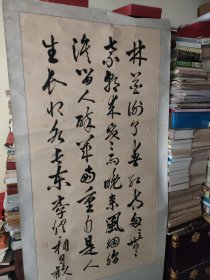 林花謝了春紅太匆匆無
奈朝来寒雨晚来風胭脂
淚留人醉幾時重自是人
生長恨水長東 李煜相見歡